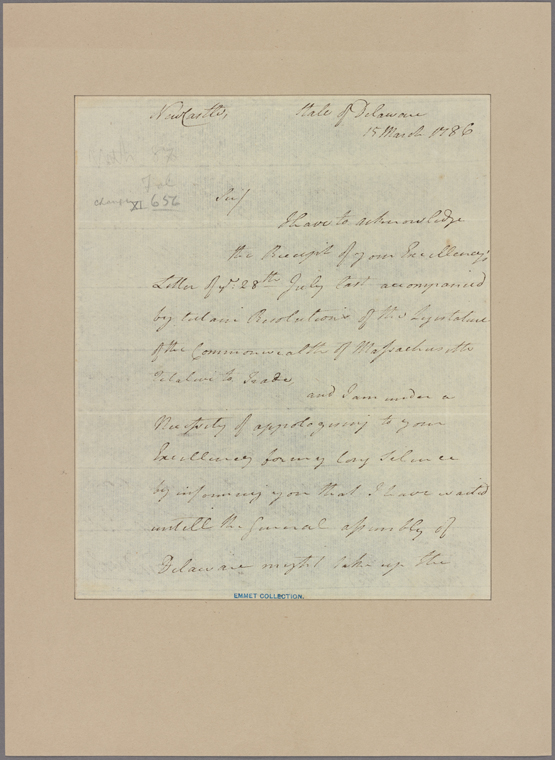 NewCastle, State of Delaware
15 March 1786
Fol
XI. 656
Sir/
I have to acknowledge
the Receipt of your Excellency's
Letter of ye. 28th July last accompanied
by certain Resolutions of the Legislature
of the Commonwealth of Massachusetts
Relative to Trade
and I am under a
Necessity of appologising to your
Excellency for my long silence
by informing you that I have waited
untill the General assembly of
Delaware might take up the
EMMET COLLECTION.